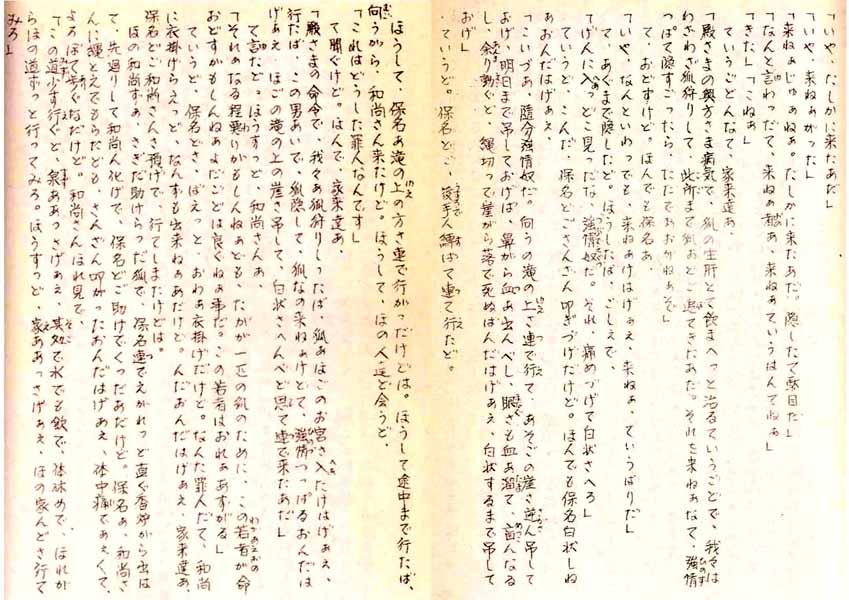 「いや、たしかに来たあだ」
「いや、来ねぁがった」
「来ねぁじゅぁねぁ。たしかに来たあだ。隠したで駄目だ」
「なんと言わっだて、来ねぁ者ぁ、来ねぁていうほんてねぁ」
「きた」「こねぁ」
ていうごどんなて、家来達ぁ、
「殿さまの奥方さま病気で、狐の生肝とて飲まへっと治るていうごどで、我々は
わざわざ狐狩りして、此所まで狐あどご追てきたあだ。それを来ねぁなて、強情
つっぱて隠すごったら、ただでぁおがねぁぞ」
て、おどすけど。ほんでも保名ぁ、
「いや、なんといわっでも、来ねぁけはげぁえ、来ねぁ、ていうばりだ」
て、あくまで隠したど。ほうしたば、ごしえで、
「げんに入っどご見っだな、強情奴だ。それ、痛めつげて白状さへろ」
ていうど、こんだ、保名どごさんざん叩ぎつげだけど。ほんでも保名白状しね
あおんだはげぁえ、
「こいづあ、随分強情奴だ。向うの滝の上さ連で行て、あそごの崖さ逆ん吊して
おげ。明日まで吊しておげば、鼻がら血ぁ出んべし、眼さも血ぁ溜て、盲んなる
し、余り動ぐど、縄切って崖がら落で死ぬばんだはげぁえ、白状するまで吊して
おげ」
ていうど。保名どご、後手ん縛ばて連て行たど。
ほうして、保名あ滝の上の方さ連で行かっだけどは。ほうして途中まで行たば、
向うから、和尚さん来たけど。ほうして、ほの人達ど会うど、
「これはどうした罪人なんです」
て聞ぐけど。ほんで、家来達ぁ、
「殿さまの命令で、我々ぁ狐狩りしったば、狐あほごのお宮さ入たけはげぁえ、
行たば、この男あいで、狐隠して、狐なの来ねぁけどて、強情つっぱるおんだは
げぁえ、ほごの滝の上の崖さ吊して、白状さへんべど思て連で来たあだ」
て言たど。ほうすっど、和尚さんぁ、
「それぁなる程業りかもしんねぁども、たがが一匹の狐のために、この若者が命
おどすかもしんねぁよだごどは良ぐねぁ事だ。この若者はおれぁあずがる」
ていうど、保名どさ、ばえっと、おわぁ衣掛げだけど。なんた罪人だて、和尚
に衣掛げらえっど、なんすも出来ねぁあだけど。んだおんだはげぁえ、家来達ぁ、
保名どご和尚さんさ預げで、行てしまたけどは。
ほの和尚すぁ、さきだ助けらっだ狐で、保名連でえかれっど直ぐ香炉がら出は
て、先廻りして和尚ん化げで、保名どご助けでくっだあだけど。保名ぁ、和尚さ
んに縄とえでもらたども、さんざん叩がったおんだはげぁえ、体中痛であえぐて、
よろぼて歩ぐなだけど。和尚さんほれ見で、
「この道少す行ぐど、泉ああっさげぁえ、其処で水でも飲で、体休めで、ほれが
らほの道ずっと行ってみろ。ほうすっど、家ああっさげぁえ、ほの家んどさ行て
みろ」